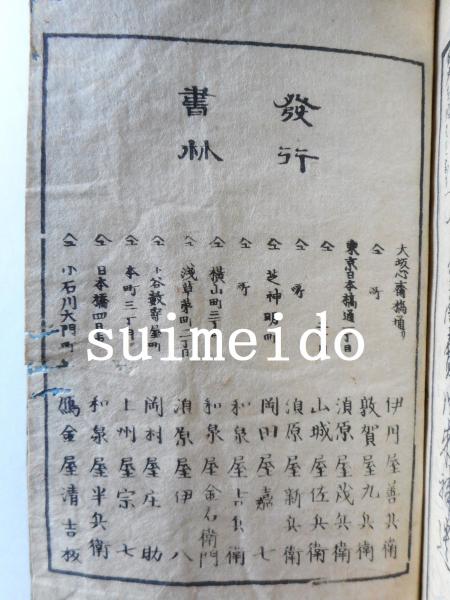 發行
書林
大坂心齋橋通り 伊丹屋善兵衛
仝 町 敦賀屋九兵衛
東京日本橋通一丁目 須原屋茂兵衛
仝 山城屋佐兵衛
仝 町 須原屋新兵衛
仝 芝神明町 岡田屋嘉七
仝 町 和泉屋吉兵衛
仝 横山町三丁目 和泉屋金右衛門
仝 浅草茅町二丁目 須原屋伊八
仝 下谷數寄屋町 岡村屋庄助
仝 本町三丁目 上州屋宗七
仝 日本橋四日市 和泉屋半兵衛
仝 小石川大門町 鴈金屋清吉板
suimeido